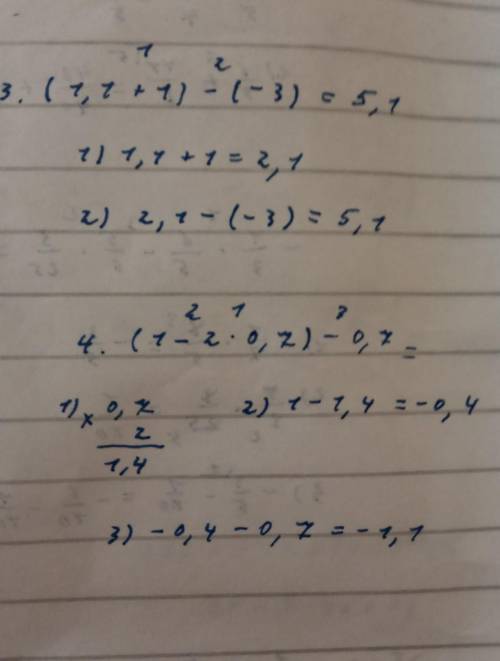 1 2
3. (1,1 + 1) - (-3) = 5,1
1) 1,1 + 1 = 2,1
2) 2,1 - (-3) = 5,1
2 1 3
4. (1 - 2 · 0,7) - 0,7 =
1) × 0,7 2) 1 - 1,4 = -0,4
2
1,4
3) -0,4 - 0,7 = -1,1